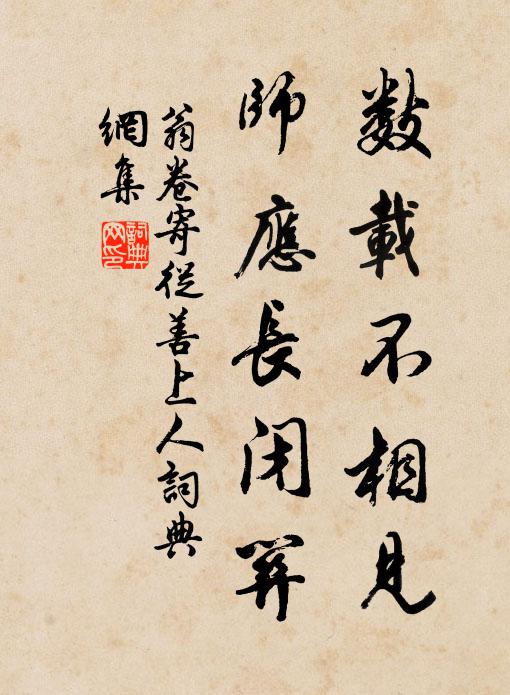 數載不相見
師應長閉關
翁卷寄從善上人詞典
網集
詞典
网印